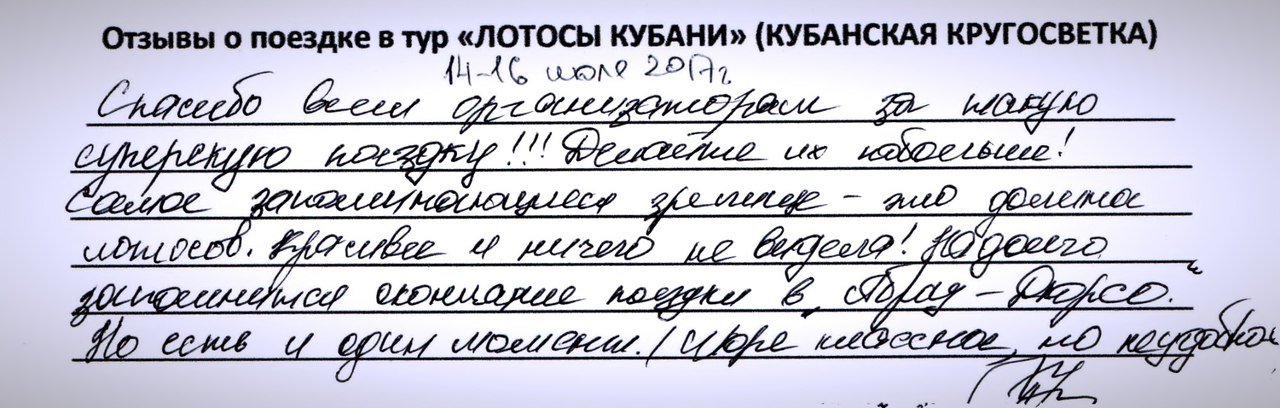 Отзывы о поездке в тур «ЛОТОСЫ КУБАНИ» (КУБАНСКАЯ КРУГОСВЕТКА)
14-16 июля 2017г
Спасибо всем организаторам за такую
суперскую поездку!!! Делайте их побольше!
Самое запоминающееся зрелище - это долина
лотосов. Красивее я ничего не видела! Надолго
запомнится окончание поездки в "Абрау-Дюрсо."
Но есть и один момент. (Море классное, но неудобной